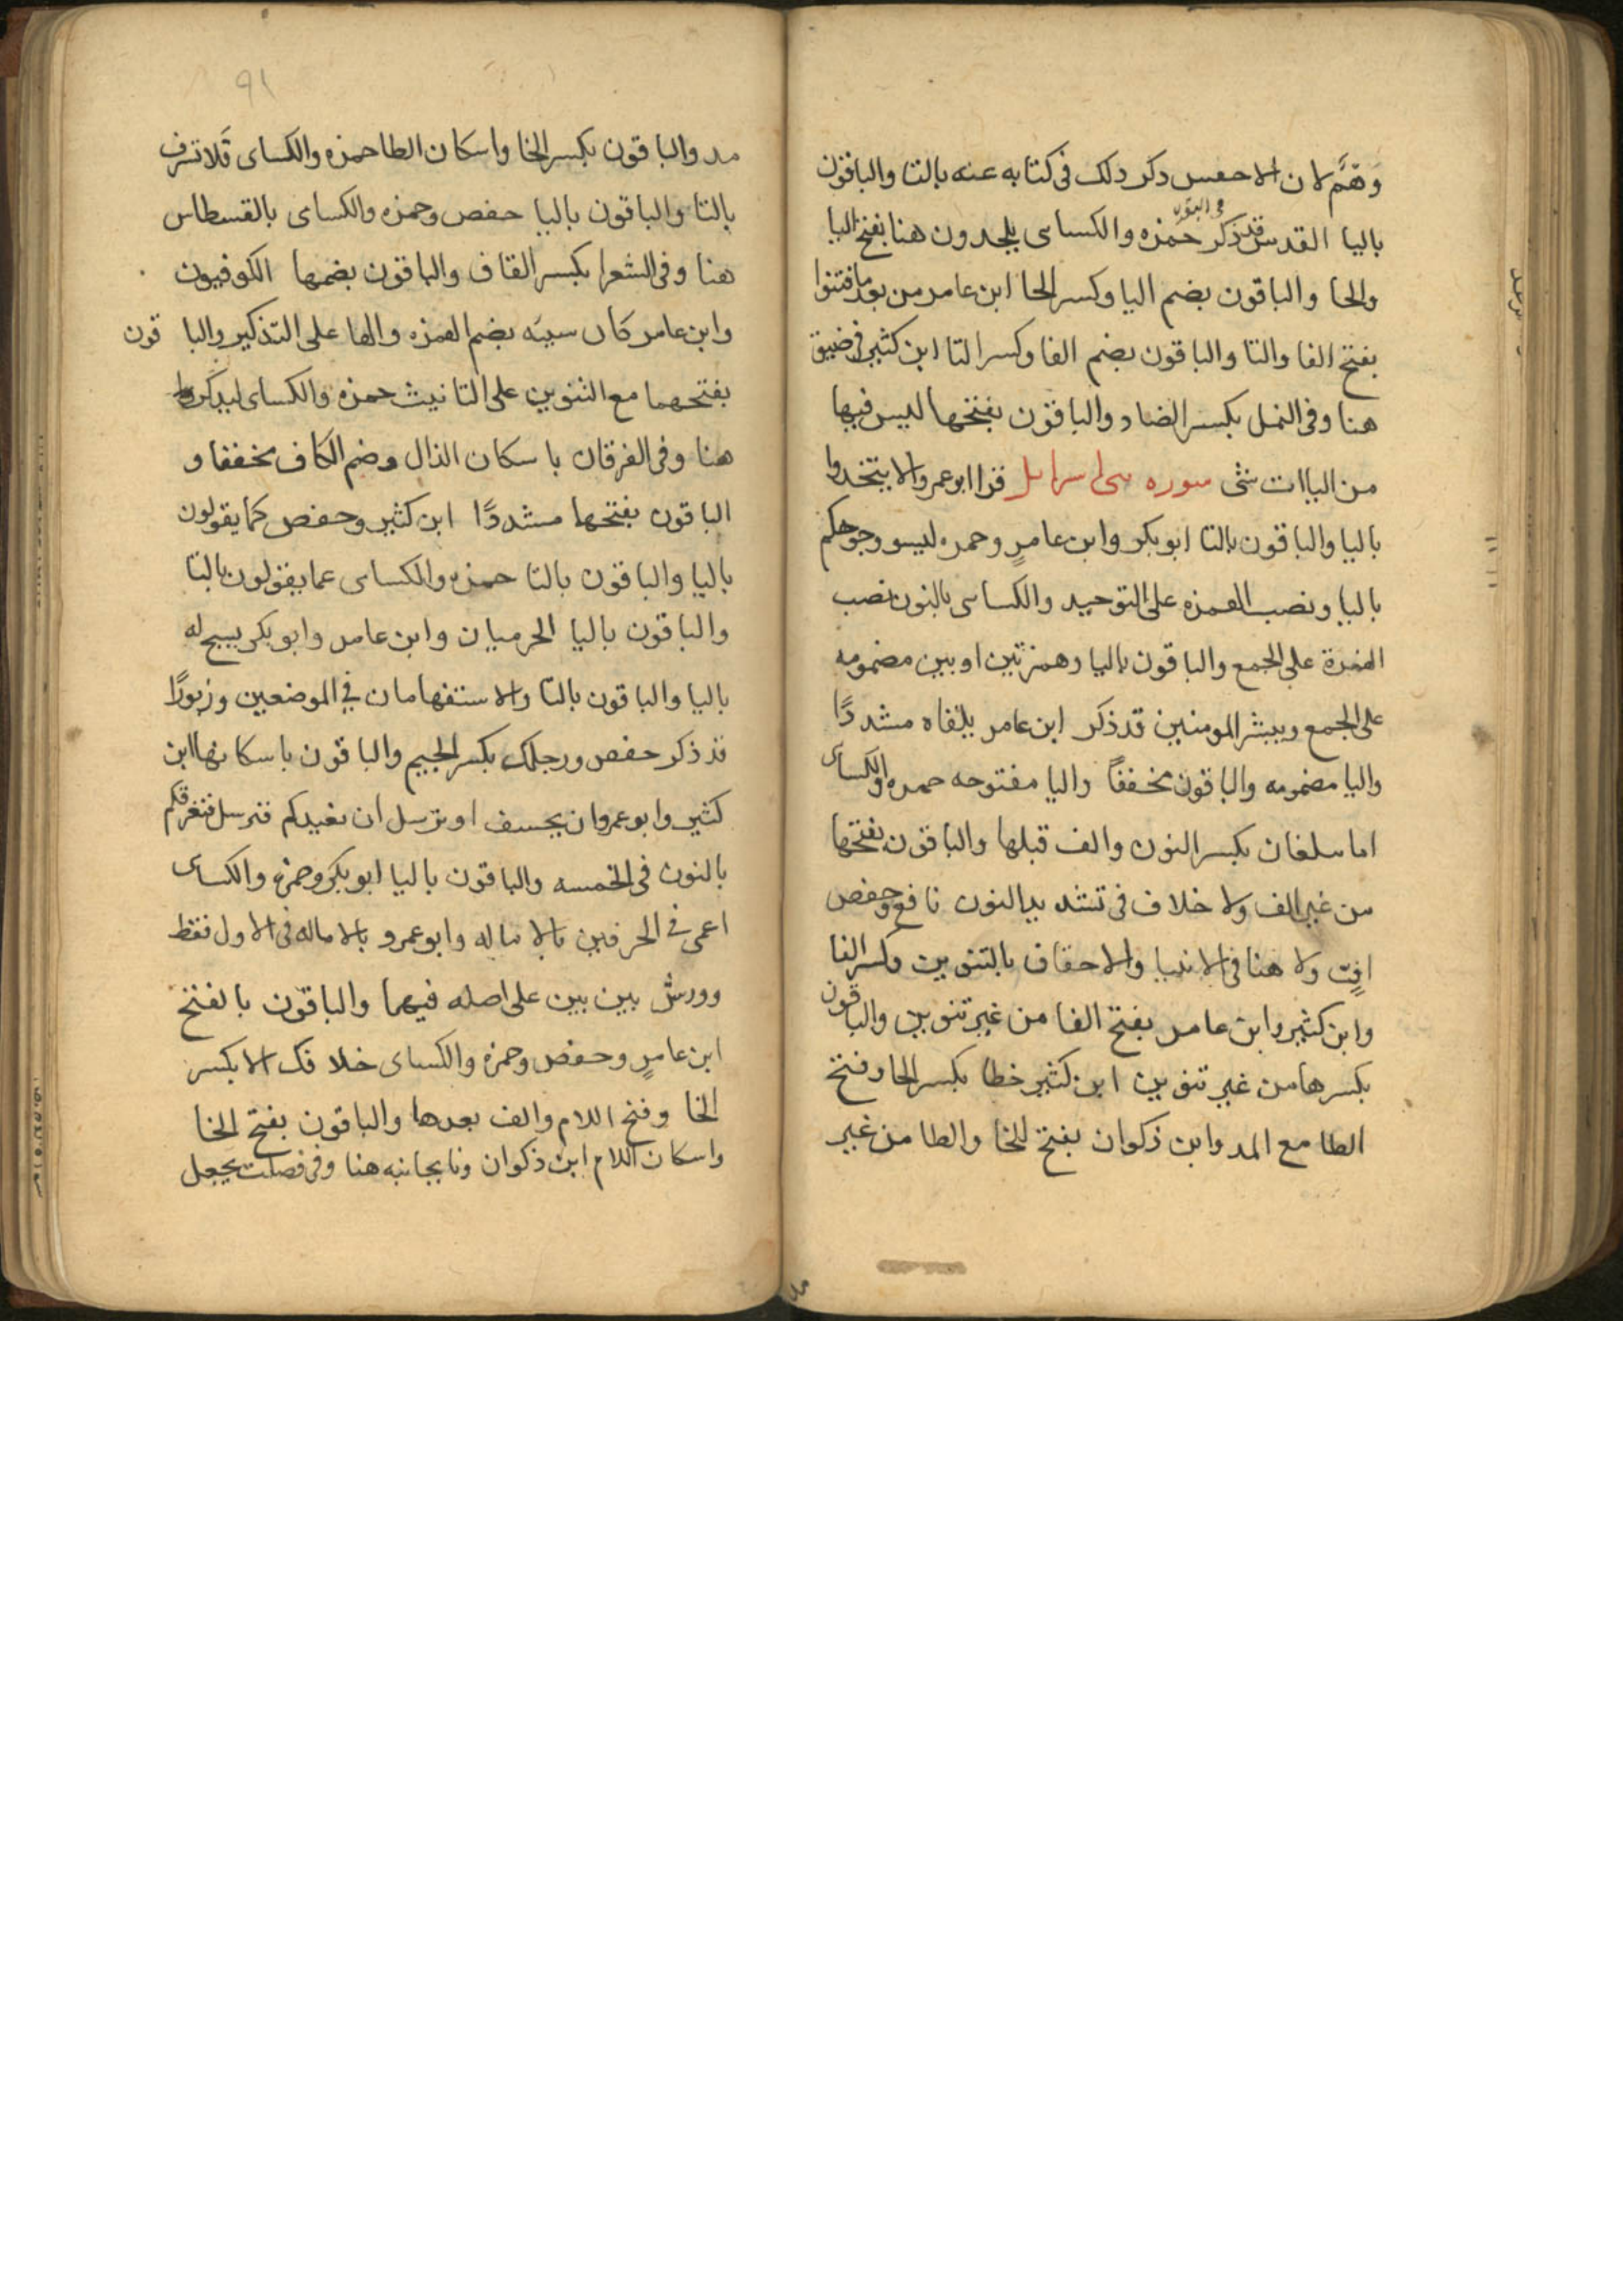 وَهْمٌ لان الاخفش ذكر ذلك فى كتابه عنه بالتا والباقون
باليا القدس قد ذكر فى البقره حمزه والكساى يلحدون هنا بفتح اليا
والحا والباقون بضم اليا وكسر الحا ابن عامر من بعد ما فتنوا
بفتح الفا والتا والباقون بضم الفا وكسر التا ابن كثير فى ضيق
هنا وفى النمل بكسر الضاد والباقون بفتحها ليس فيها
من الياات شى سوره بنى اسرايل قرا ابو عمرو الا يتخذوا
باليا والباقون بالتا ابو بكر وابن عامرٍ وحمزه ليسو وجوهكم
باليا ونصب الهمزه على التوحيد والكساى بالنون نصب
الهمزة على الجمع والباقون باليا وهمزتين او بين مضمومه
على الجمع ويبشر المومنين قد ذكر ابن عامر يلقاه مشددًا
واليا مضمومه والباقون مخففاً واليا مفتوحه حمزه والكساى
اما يبلغان بكسر النون والف قبلها والباقون بفتحها
من غير الف ولا خلاف فى تشديد النون نافع وحفص
افٍّ ولا هنا فى الانبيا والاحقاف بالتنوين وكسر الفا
وابن كثير وابن عامر بفتح الفا من غير تنوين والباقون
بكسرها من غير تنوين ابن كثير خطا بكسر الخا وفتح
الطا مع المد وابن ذكوان بفتح للخا والطا من غير
٩١
مد والباقون بكسر الخا واسكان الطا حمزه والكساى فَلا تسرف
بالتا والباقون باليا حفص وحمزه والكساى بالقسطاس
هنا وفى الشعرا بكسر القاف والباقون بضمها الكوفيون
وابن عامر كان سيئه بضم الهمزه والها على التذكير والباقون
بفتحهما مع التنوين على التانيث حمزه والكساى ليذكروا
هنا وفى الفرقان باسكان الذال وضم الكاف مخففا و
الباقون بفتحها مشددًا ابن كثير وحفص كما يقولون
باليا والباقون بالتا حمزه والكساى عما يقولون بالتا
والباقون باليا الحرميان وابن عامر وابو بكر يسبح له
باليا والباقون بالتا والاستفهامان في الموضعين وزبورًا
قد ذكر حفص ورجلك بكسر الجيم والباقون باسكانها ابن
كثير وابو عمرو ان يخسف او يرسل ان نعيدكم فنرسل فنغرقكم
بالنون فى الخمسه والباقون باليا ابو بكر وحمزه والكساى
اعمى فى الحرفين بالاماله وابو عمرو بالاماله فى الاول فقط
وورشٌ بين بين على اصله فيهما والباقون بالفتح
ابن عامرٍ وحفص وحمزه والكساى خلافك الا بكسر
الخا وفتح اللام والف بعدها والباقون بفتح الخا
واسكان اللام ابن ذكوان ونا بجانبه هنا وفى فصلت يجعل